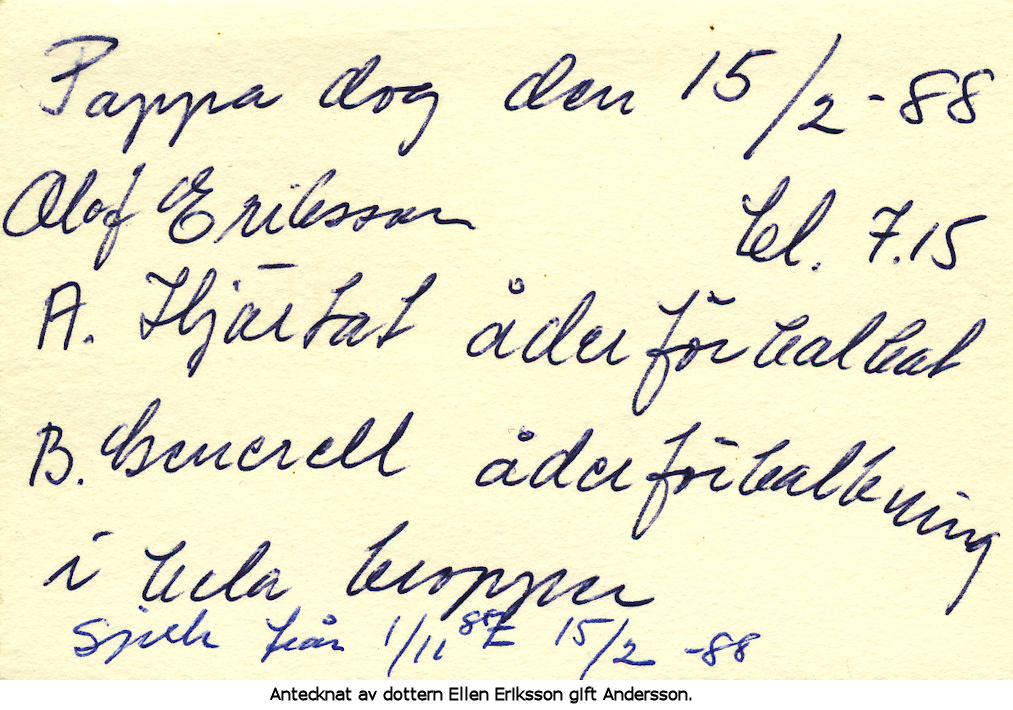 Pappa dog den 15/2 - 88
Olof Eriksson kl. 7.15
A. Hjärtat åderförkalkat
B. Generell åderförkalkning
i hela kroppen
Sjuk från 1/11 15/2 -88
Antecknat av dottern Ellen Eriksson gift Andersson.